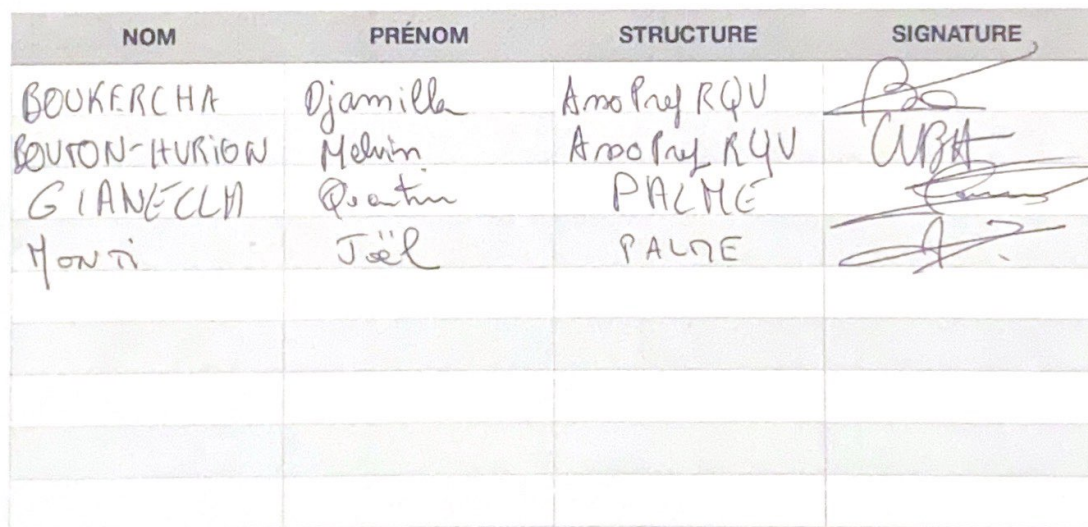 NOM PRÉNOM STRUCTURE SIGNATURE
BOUKERCHA Djamilla Asso Pref RQV
BOUTON-HURION Melvin Asso Pref RQV
Quentin PALME
MONTI Joël PALME